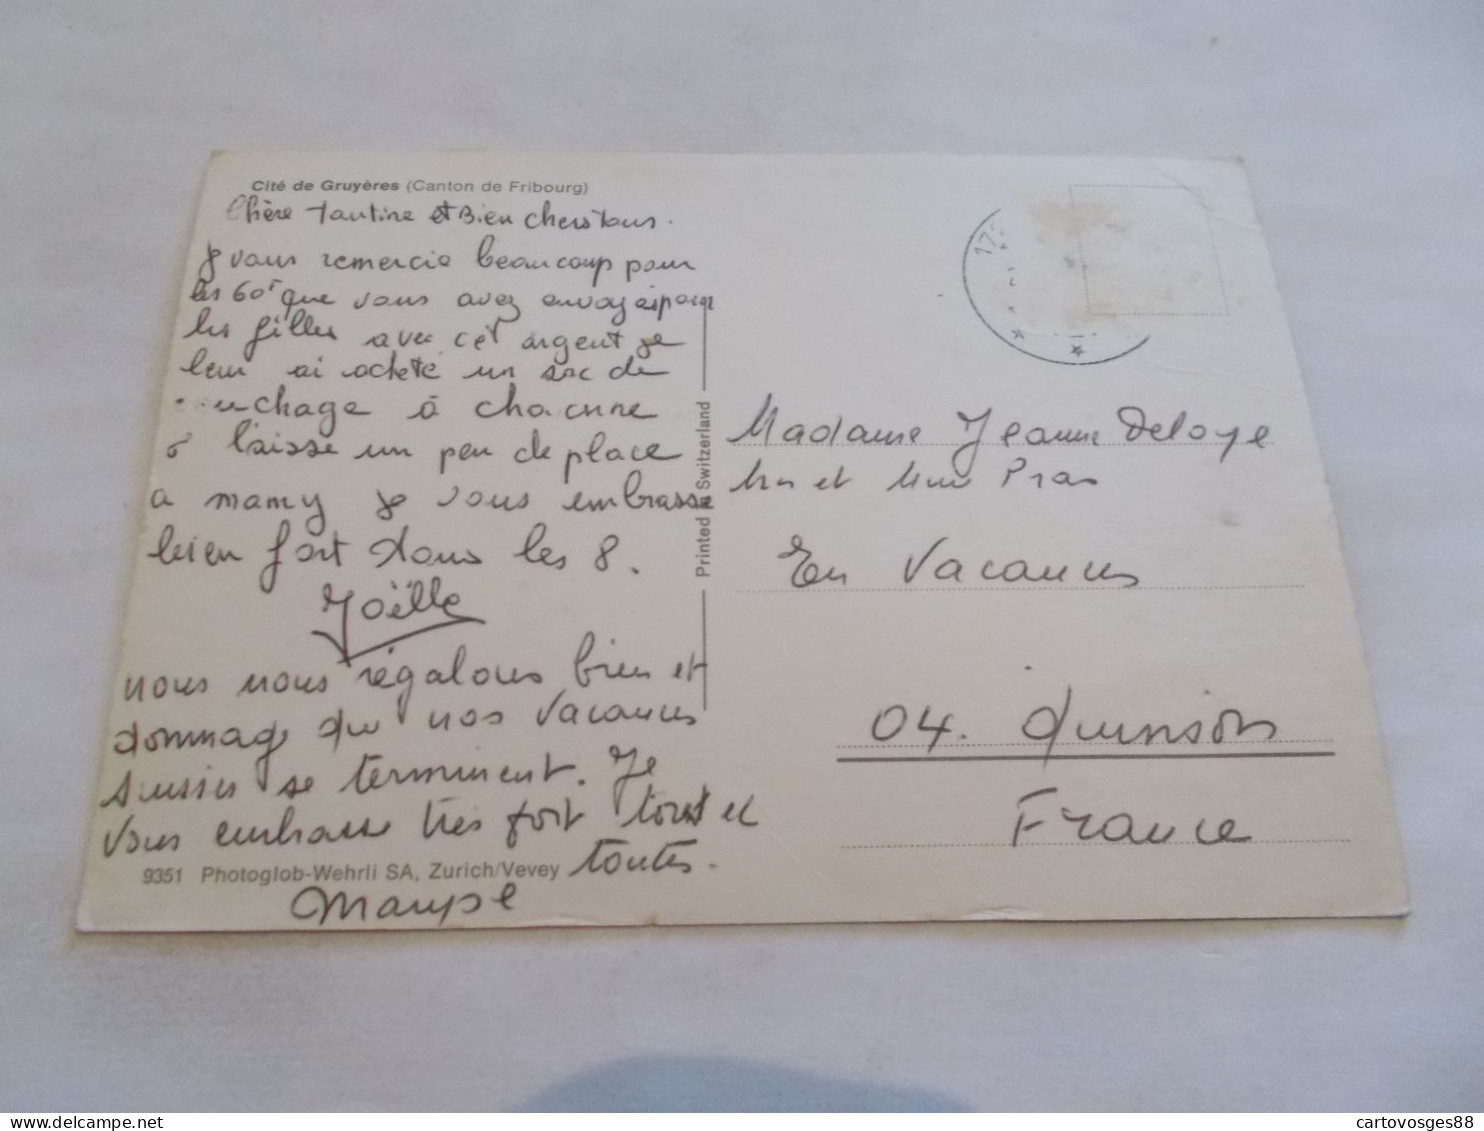 Cité de Gruyères (Canton de Fribourg)
Chère Tantine et Bien chers tous.
Je vous remercie beaucoup pour
les 60F que vous avez envoyés pour
les filles avec cet argent je
leur ai acheté un sac de
couchage à chacune
laisse un peu de place
a mamy je vous embrasse
bien fort tous les 8.
Joëlle
nous nous régalons bien et
dommage que nos vacances
suisses se terminent. Je
vous embrasse très fort tous et
toutes.
9351 Photoglob-Wehrli SA, Zurich/Vevey
Printed Switzerland
Madame Jeanne Deloye
et Mme Pras
En Vacances
04. Quinson
France
cartovosges88